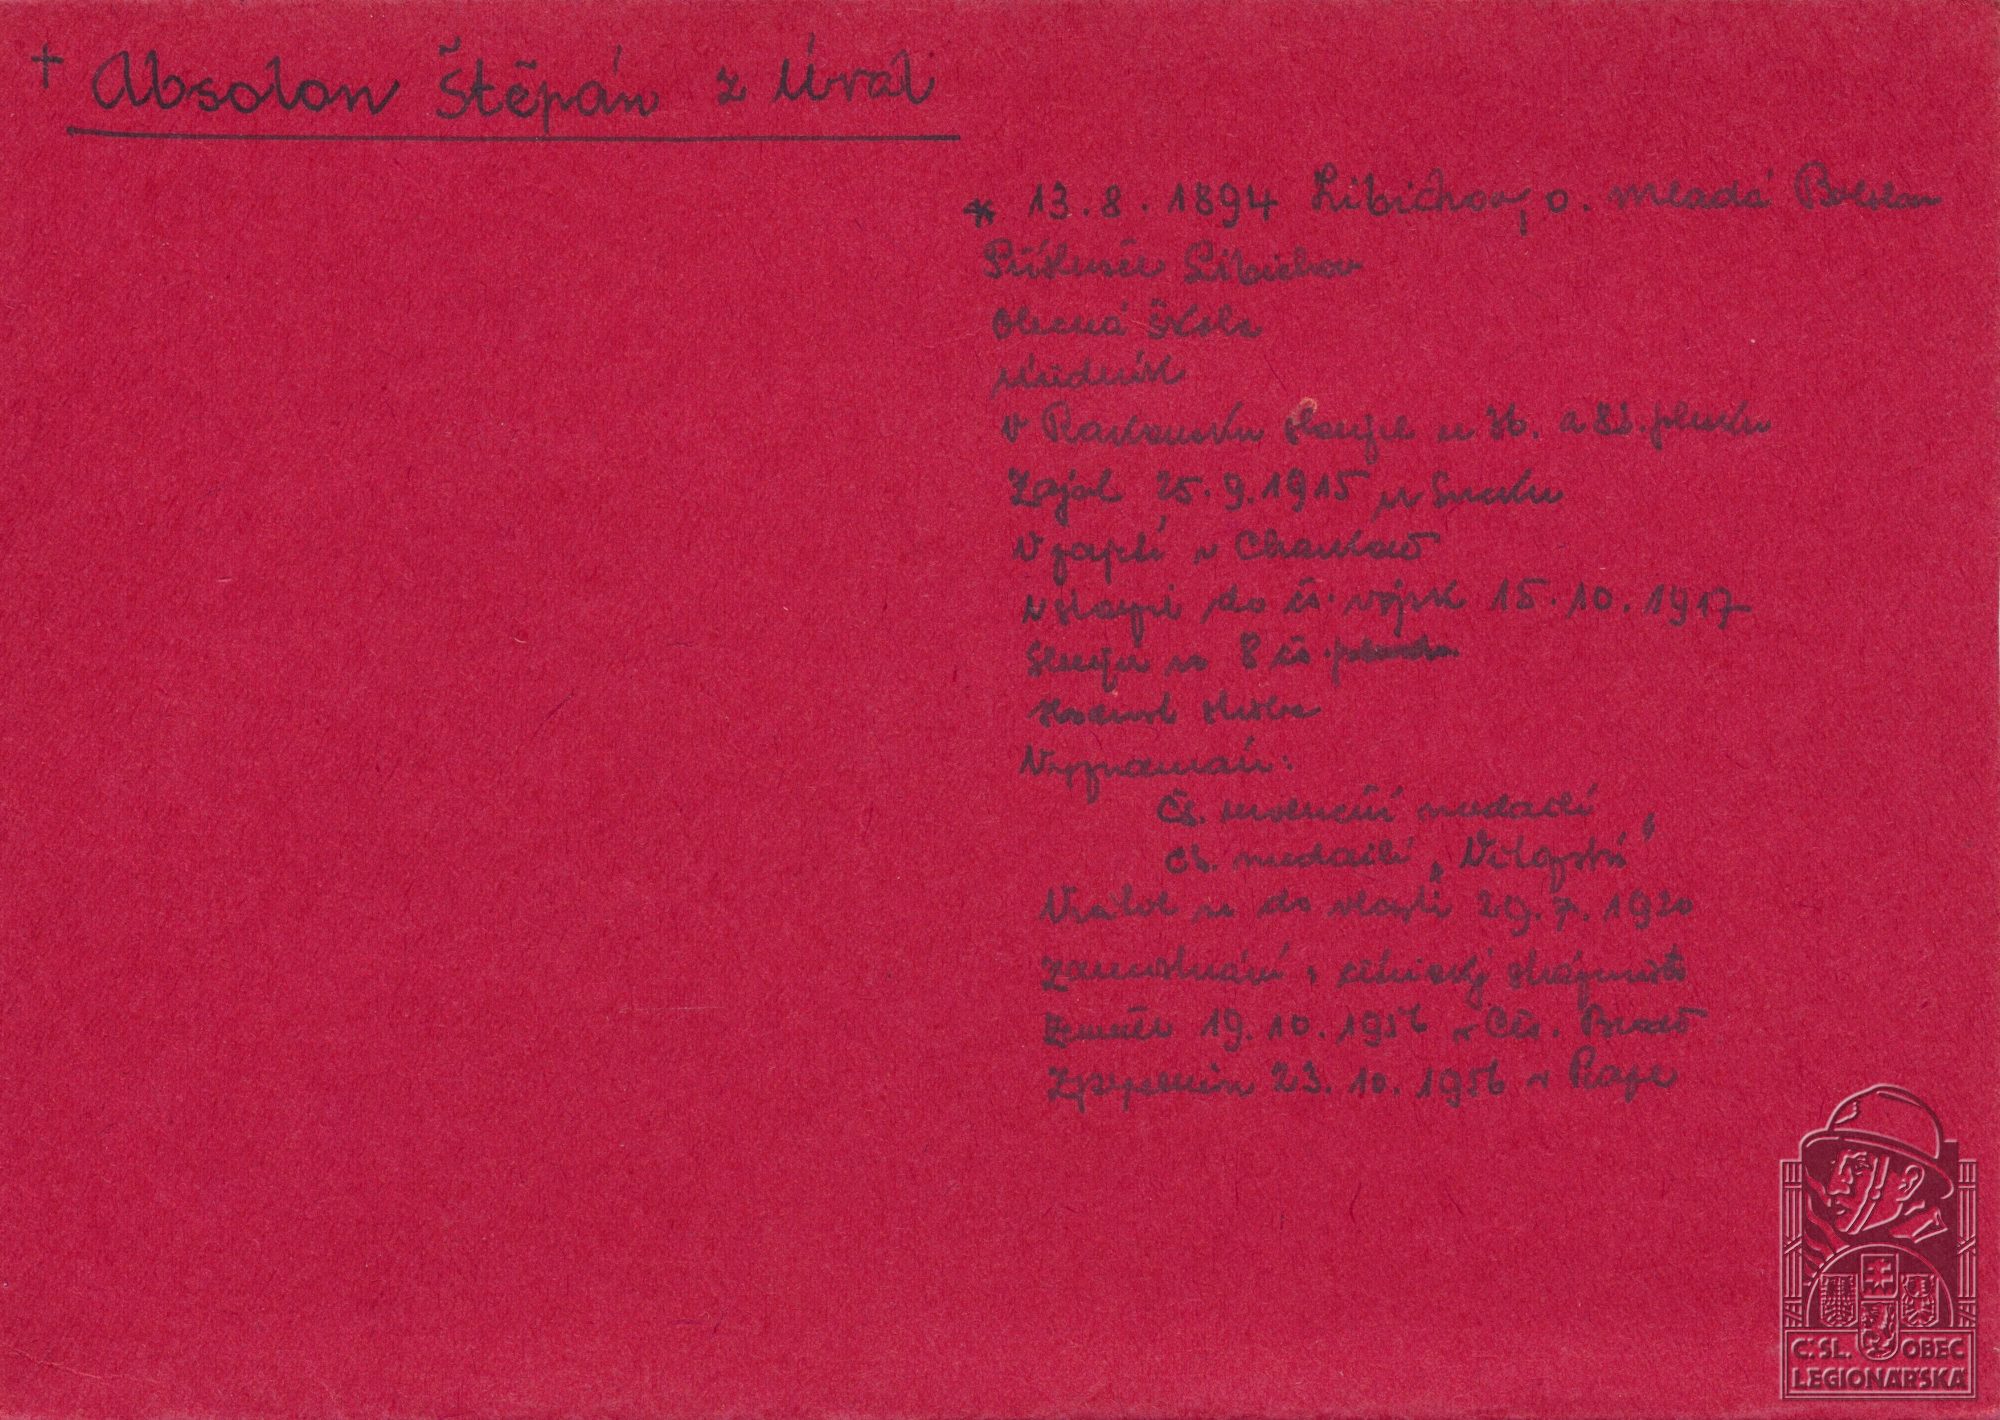 + Absolon Štěpán z Úval
* 13.8.1894 Libichov, o. Mladá Boleslav
Příslušer Libichov
Obecná škola
Úředník
v Rakousku sloužil u 36. a 82. pluku
Zajat 25.9.1915 u Lucku
V zajetí v Charkově
vstoupil do čs. vojsk 15.10.1917
Sloužil v 8 čs. pluku
Hodnost
Vyznamenán:
Čs. revoluční medailí
Čs. medailí „Vítězství“
Vrátil se do vlasti 29.7.1920
Zaměstnání: strážmistr
Zemřel 19.10.1956 v Čes. Brodě
Zpopelněn 23.10.1956 v Praze
Č.SL. OBEC
LEGIONÁŘSKÁ